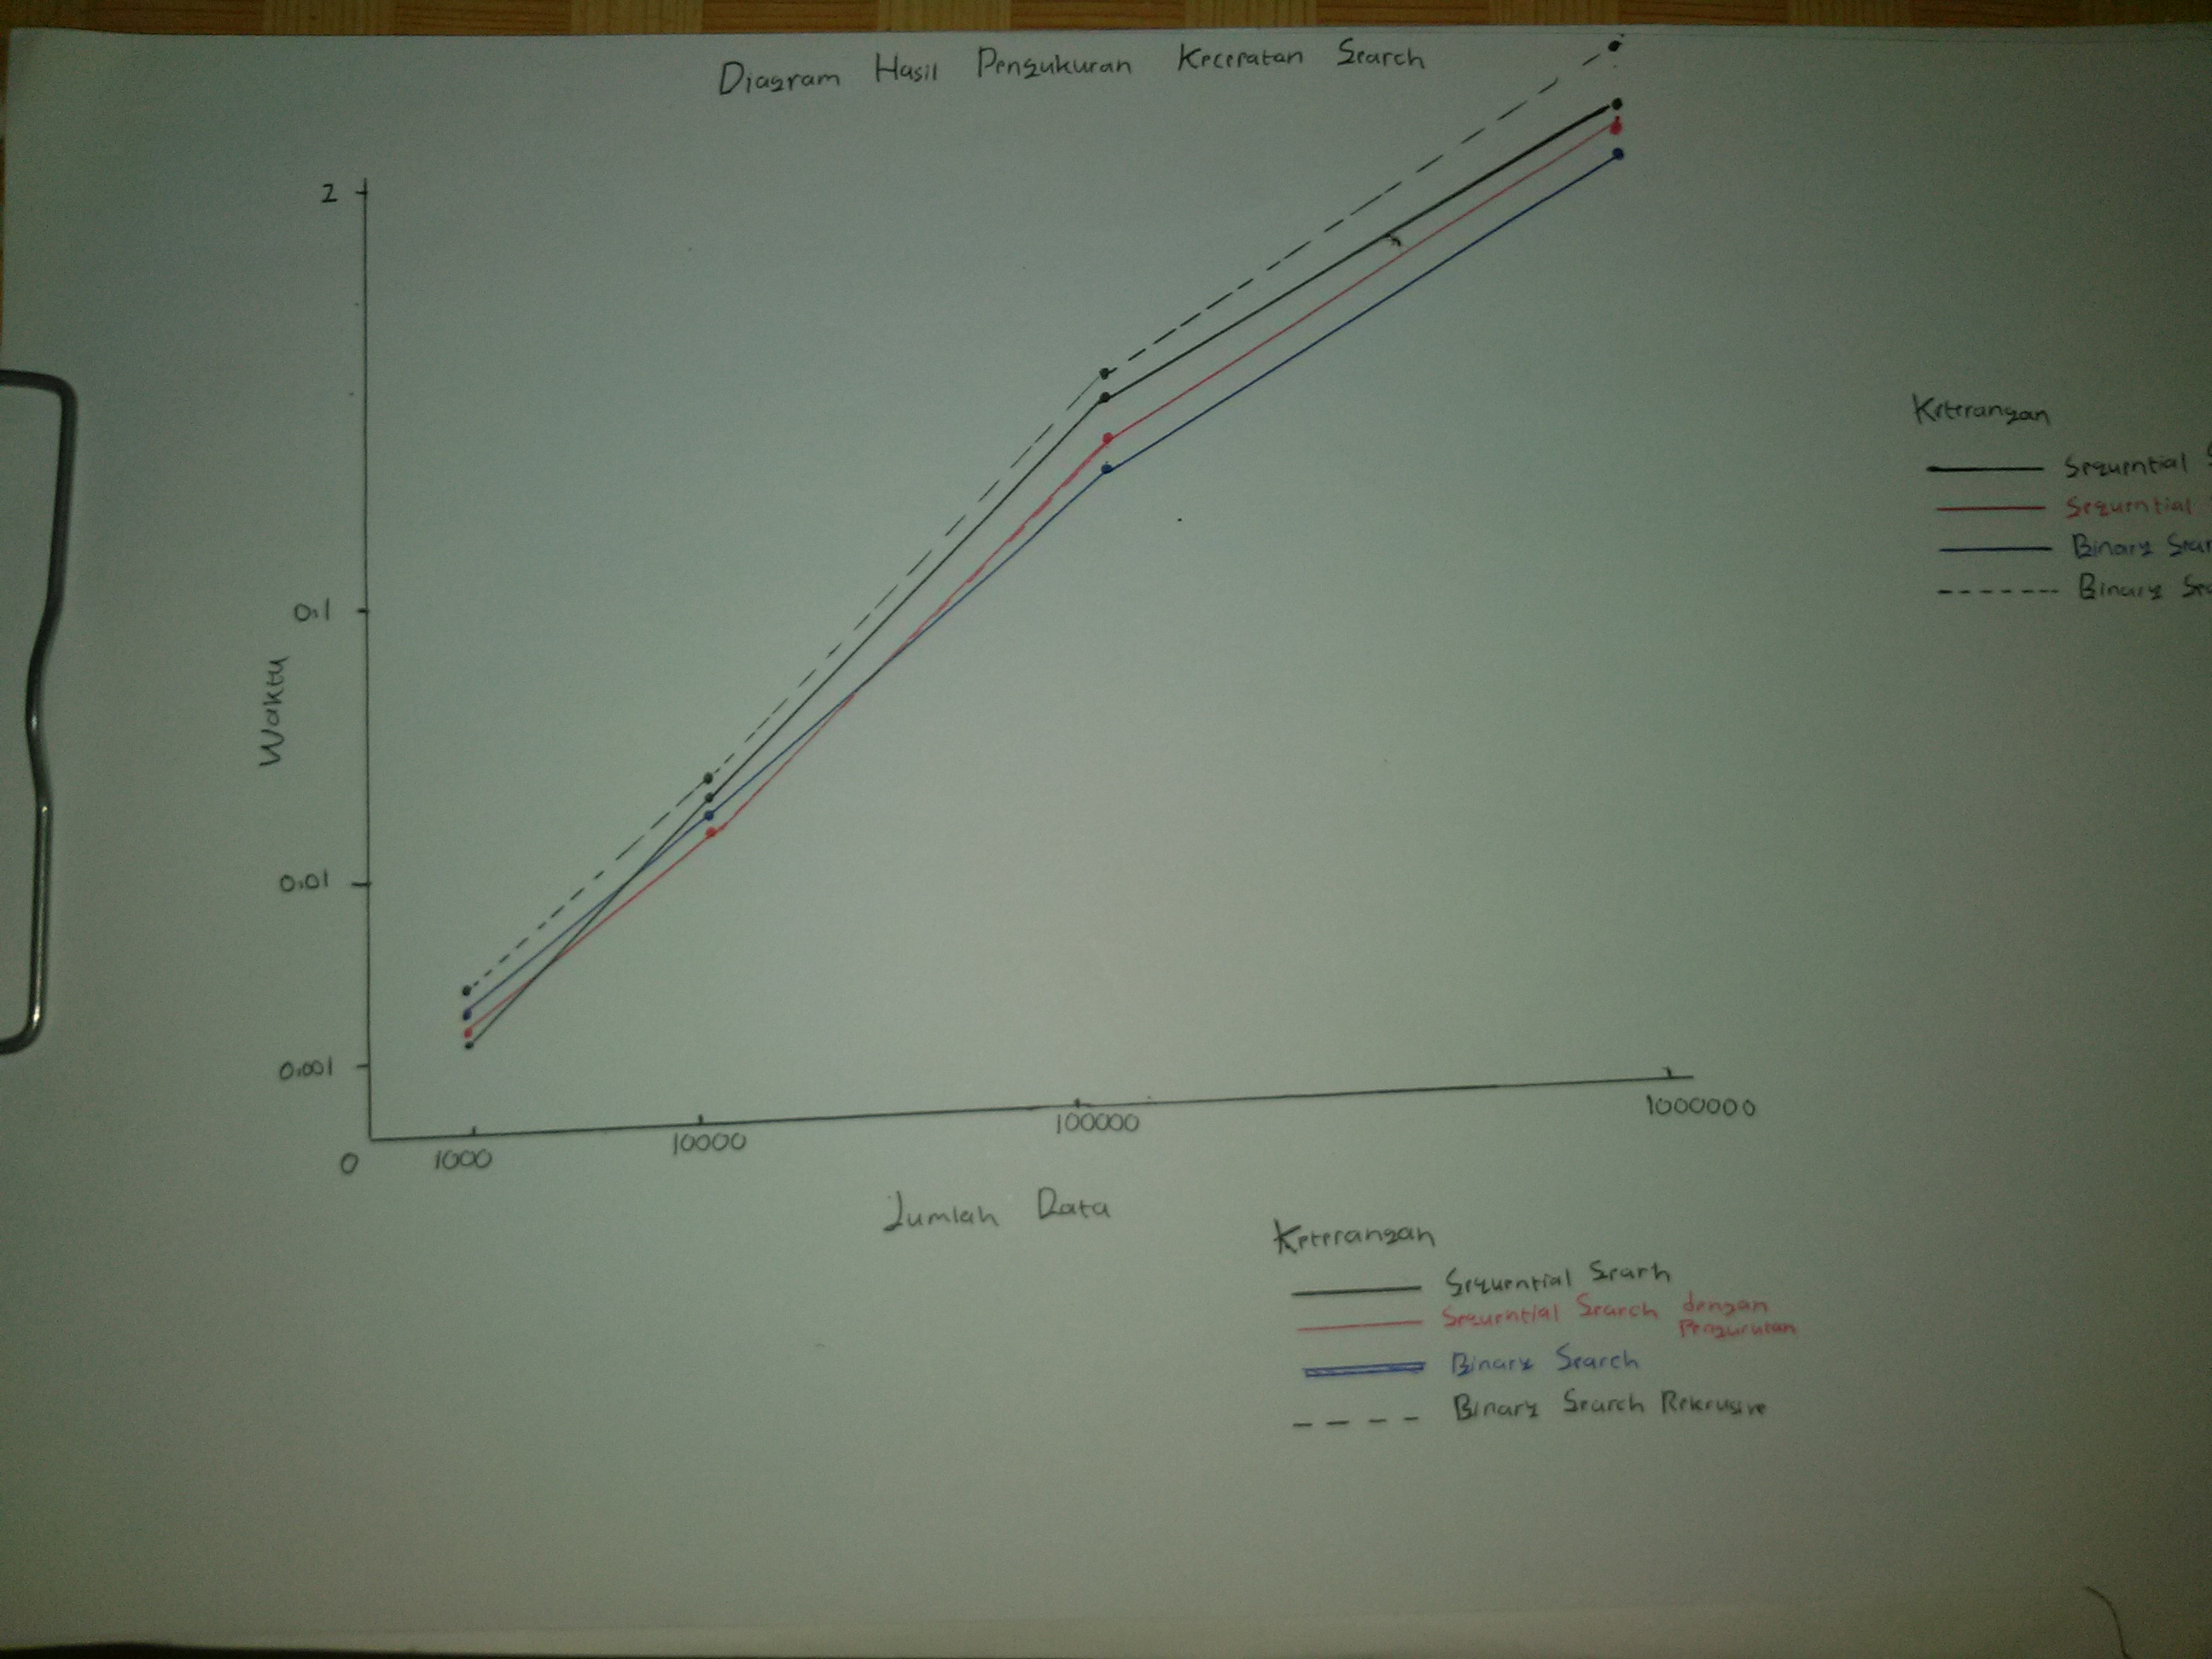 Diagram Hasil Pengukuran Kecepatan Search
2
0.1
0.01
0.001
Waktu
0
1000
10000
100000
1000000
Jumlah Data
Keterangan
Sequential
Sequential
Binary
Binary
Keterangan
Sequential Searh
Sequential Search dengan
Pengurutan
Binary Search
Binary Search Rekrusive